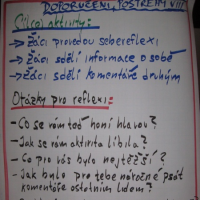 DOPORUČENÍ, POSTŘEHY !!!
Cíl(e) aktivity:
→ Žáci provedou sebereflexi
→ Žáci sdělí informace o sobě
→ Žáci sdělí komentáře druhým
Otázky pro reflexi:
- Co se vám teď honí hlavou?
- Jak se vám aktivita líbila?
- Co pro vás bylo nejtěžší?
- Jak bylo pro tebe náročné psát
komentáře ostatním lidem?